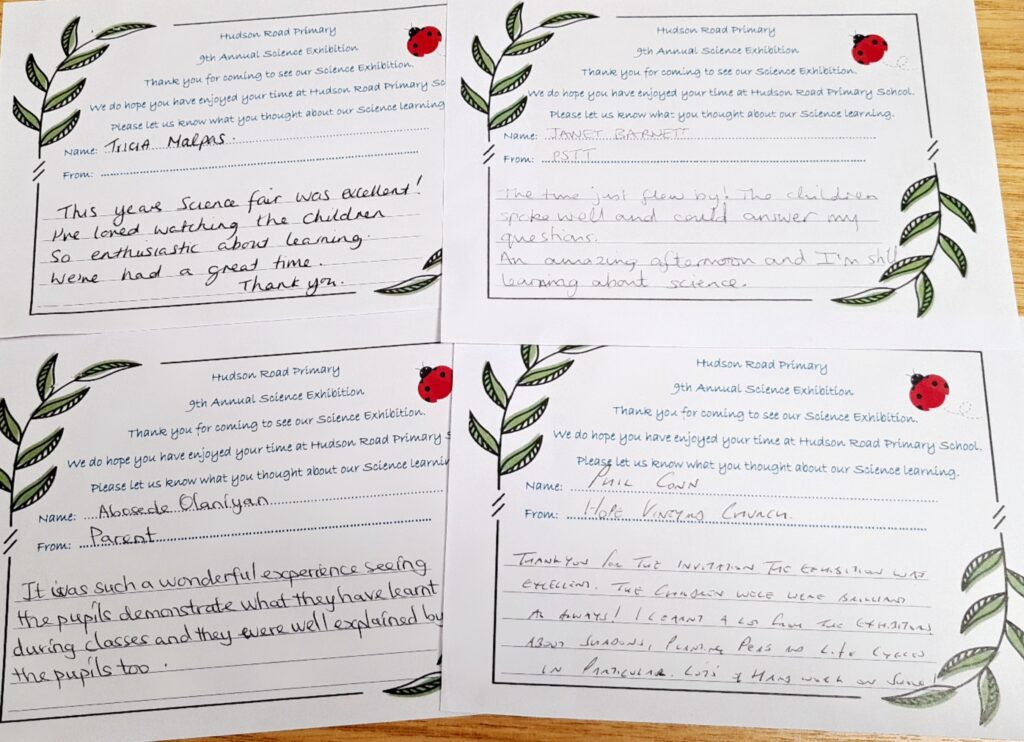 Hudson Road Primary
9th Annual Science Exhibition
Thank you for coming to see our Science Exhibition.
We do hope you have enjoyed your time at Hudson Road Primary Sc
Please let us know what you thought about our Science learning
Name: Tricia Malpas.
From:
This years Science fair was excellent!
I've loved watching the children
So enthusiastic about learning.
We've had a great time.
Thank you.
Hudson Road Primary
9th Annual Science Exhibition
Thank you for coming to see our Science Exhibition.
We do hope you have enjoyed your time at Hudson Road Primary School.
Please let us know what you thought about our Science learning.
Name: JANET BARNETT
From: PSTT
The time just flew by! The children
spoke well and could answer my
questions.
An amazing afternoon and I'm still
learning about science.
Hudson Road Primary
9th Annual Science Exhibition
Thank you for coming to see our Science Exhibition.
We do hope you have enjoyed your time at Hudson Road Primary S
Please let us know what you thought about our Science learnin
Name: Abosede Olaniyan
From: Parent
It was such a wonderful experience seeing
the pupils demonstrate what they have learnt
during classes and they were well explained by
the pupils too.
Hudson Road Primary
9th Annual Science Exhibition
Thank you for coming to see our Science Exhibition.
We do hope you have enjoyed your time at Hudson Road Primary School.
Please let us know what you thought about our Science learning.
Name: PHIL CONN
From: HOPE VINEYARD CHURCH.
THANKYOU FOR THE INVITATION THE EXHIBITION WAS
EXCELLENT. THE CHILDREN WERE BRILLIANT
AS ALWAYS! I LEARNT A LOT FROM THE EXHIBITIONS
ABOUT SHADOWS, PLANTING PEAS AND LIFE CYCLES
IN PARTICULAR. LOTS OF HARD WORK ON SHOW!